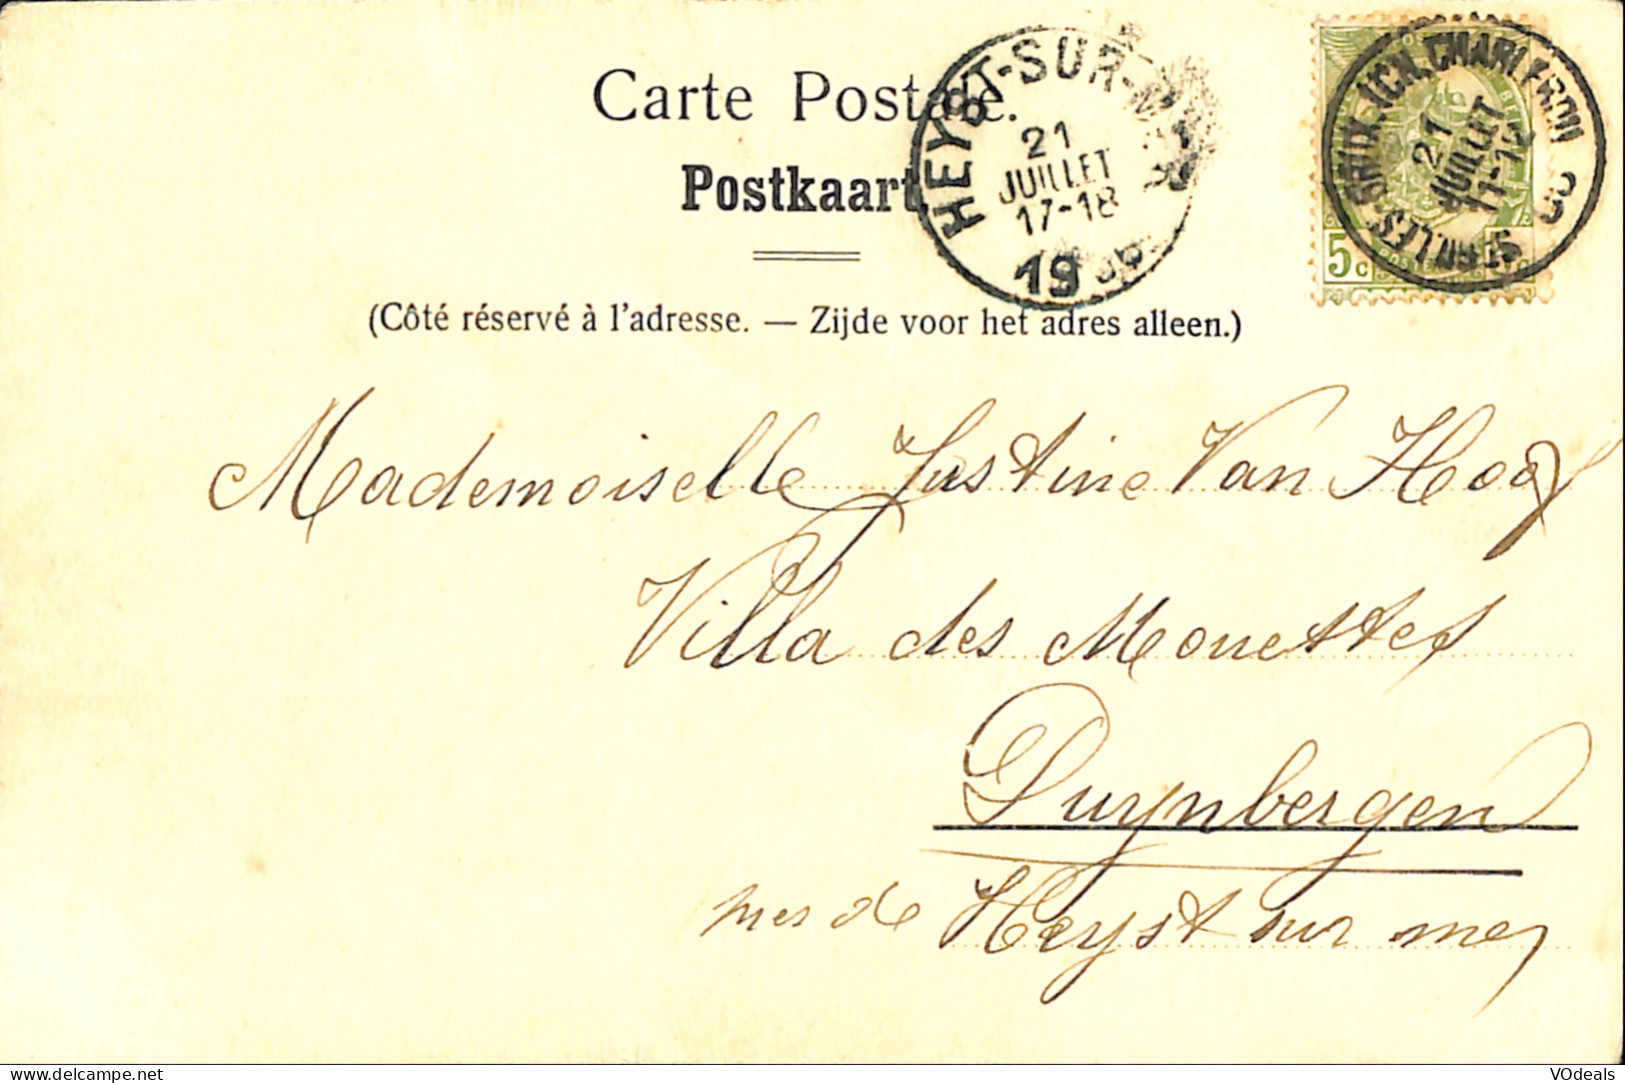 Carte Postale.
Postkaart
(Côté réservé à l'adresse. — Zijde voor het adres alleen.)
HEYST-SUR-M
21
JUILLET
17-18
19
CHARLEROI
21
JUILLET
11-12
5c
Mademoiselle Justine Van Hoof
Villa des Mouettes
Duynbergen
près de Heyst sur mer
www.delcampe.net
VOdeals